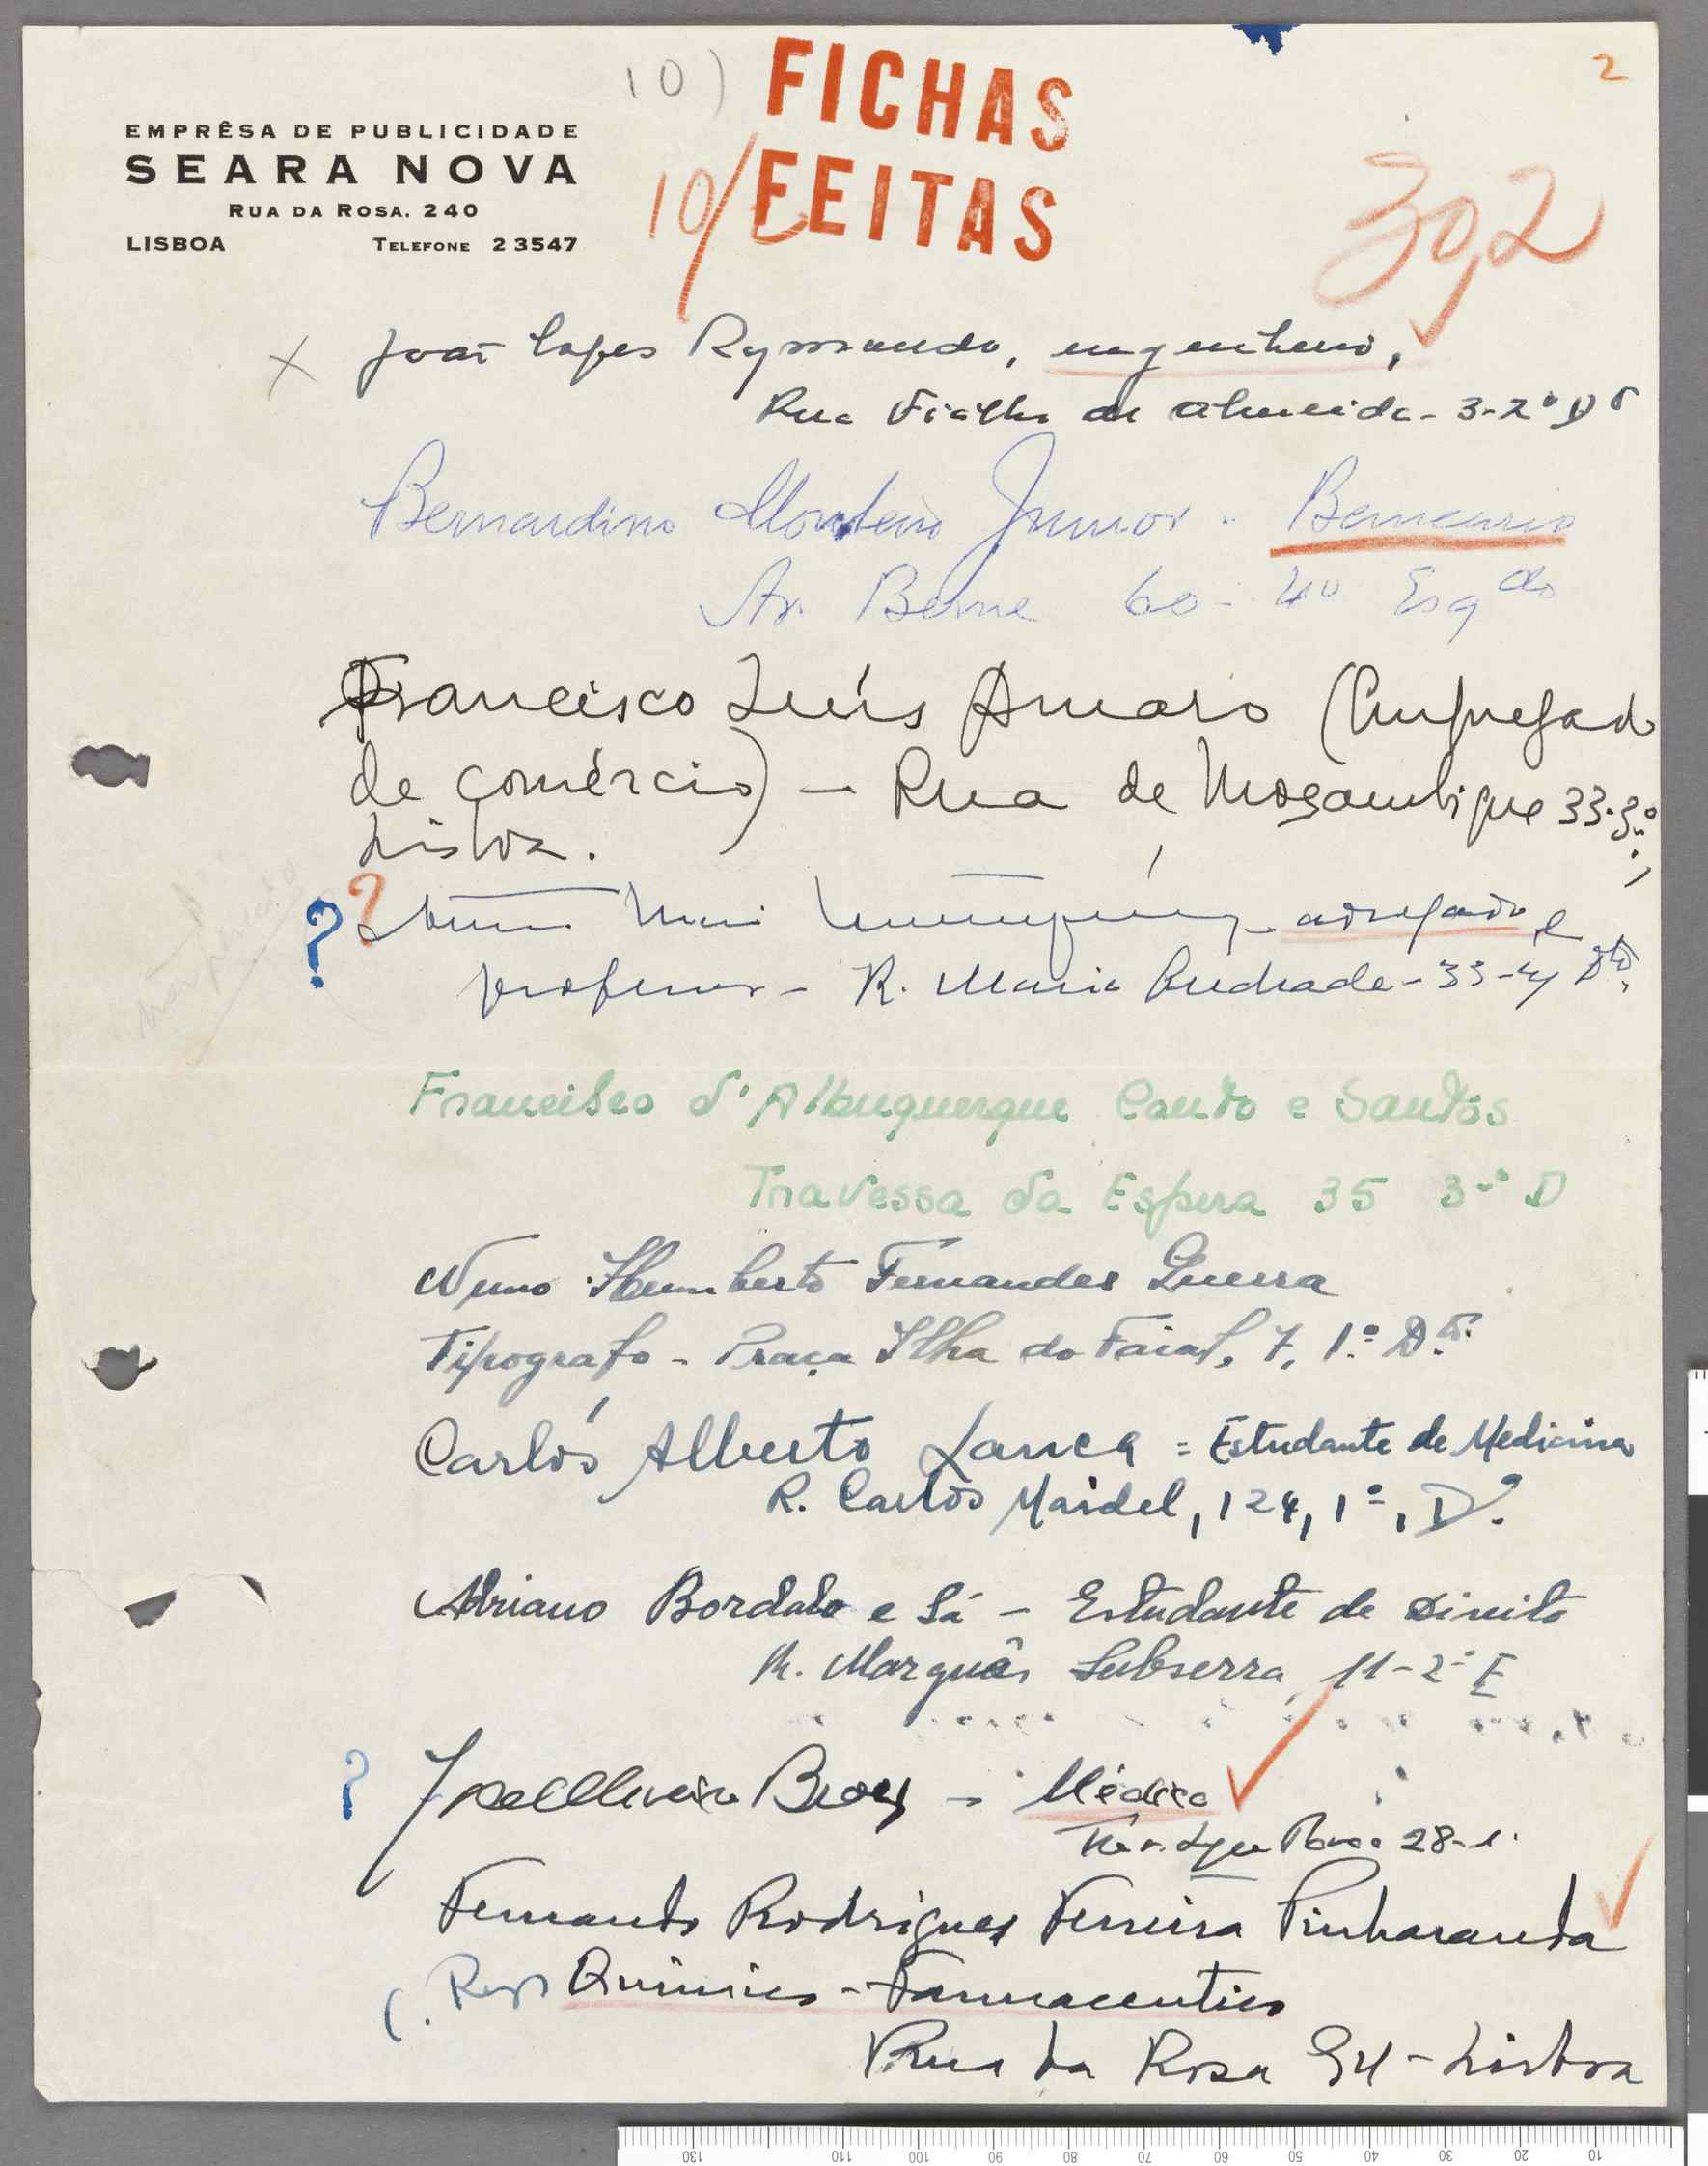 10)
FICHAS
2
EMPRÊSA DE PUBLICIDADE
SEARA NOVA
10/
FEITAS
302
RUA DA ROSA. 240
LISBOA TELEFONE 23547
X João Lopes Raymundo, engenheiro,
Rua Fialho de Almeida - 3-2º Dº
Bernardino Monteiro Junior - Bancario
Av. Berne 60 - 4º Esqdo
Francisco Luís Amaro (Empregado
de comércio) - Rua de Moçambique 33-3.º,
Lisboa.
? ? advogado e
professor - R. Maria Andrade - 33-4 Dto,
Francisco d'Albuquerque Couto e Santos
Travessa da Espera 35 3º D
Nuno Humberto Fernandes Guerra
Tipografo - Praça Ilha do Faial, 7, 1.º Dt.
Carlos Alberto Lança = Estudante de Medicina
R. Carlos Mardel, 124, 1º, Dº.
Adriano Bordalo e Sá - Estudante de Direito
R. Marquês Subserra, 11-2º E
? - Médico
28-1.
Fernando Rodrigues Ferreira Pinharanda
Químico - Farmaceutico
Rua da Rosa - Lisboa
130 110 100 90 80 70 60 50 40 30 20 10